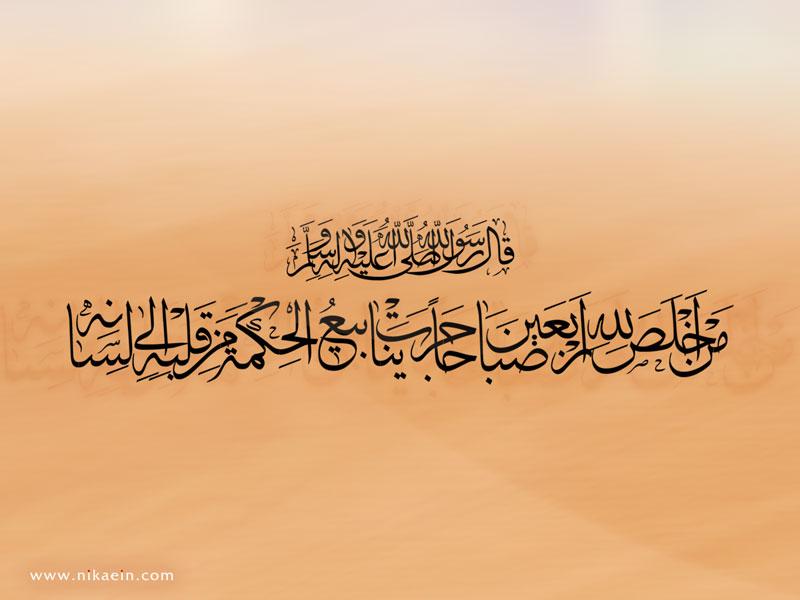 قال رسول الله صلى الله عليه وآله وسلم
من أخلص لله أربعين صباحا جرت ينابيع الحكمة من قلبه إلى لسانه
www.nikaein.com